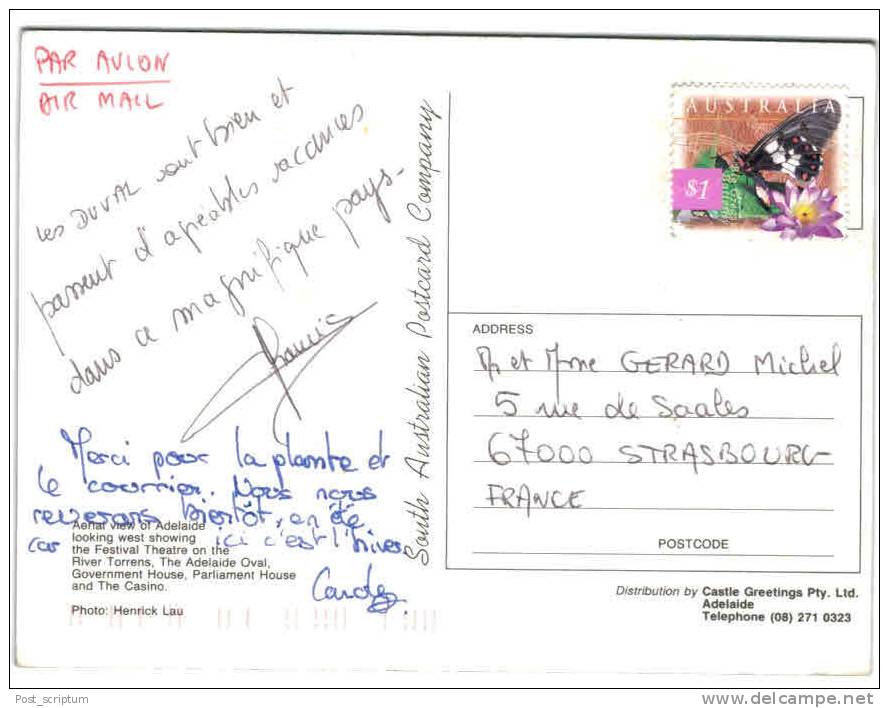 PAR AVION
AIR MAIL
Les DUVAL vont bien et
passent d'agréables vacances
dans ce magnifique pays.
Merci pour la plante et
le courrier. Nous nous
reverrons bientôt, en été
car ici c'est l'hiver.
Aerial view of Adelaide
looking west showing
the Festival Theatre on the
River Torrens, The Adelaide Oval,
Government House, Parliament House
and The Casino.
Photo: Henrick Lau
South Australian Postcard Company
AUSTRALIA
$1
ADDRESS
M et Mme GERARD Michel
5 rue de Saales
67000 STRASBOURG
FRANCE
POSTCODE
Distribution by Castle Greetings Pty. Ltd.
Adelaide
Telephone (08) 271 0323
Post_scriptum
delcampe.net